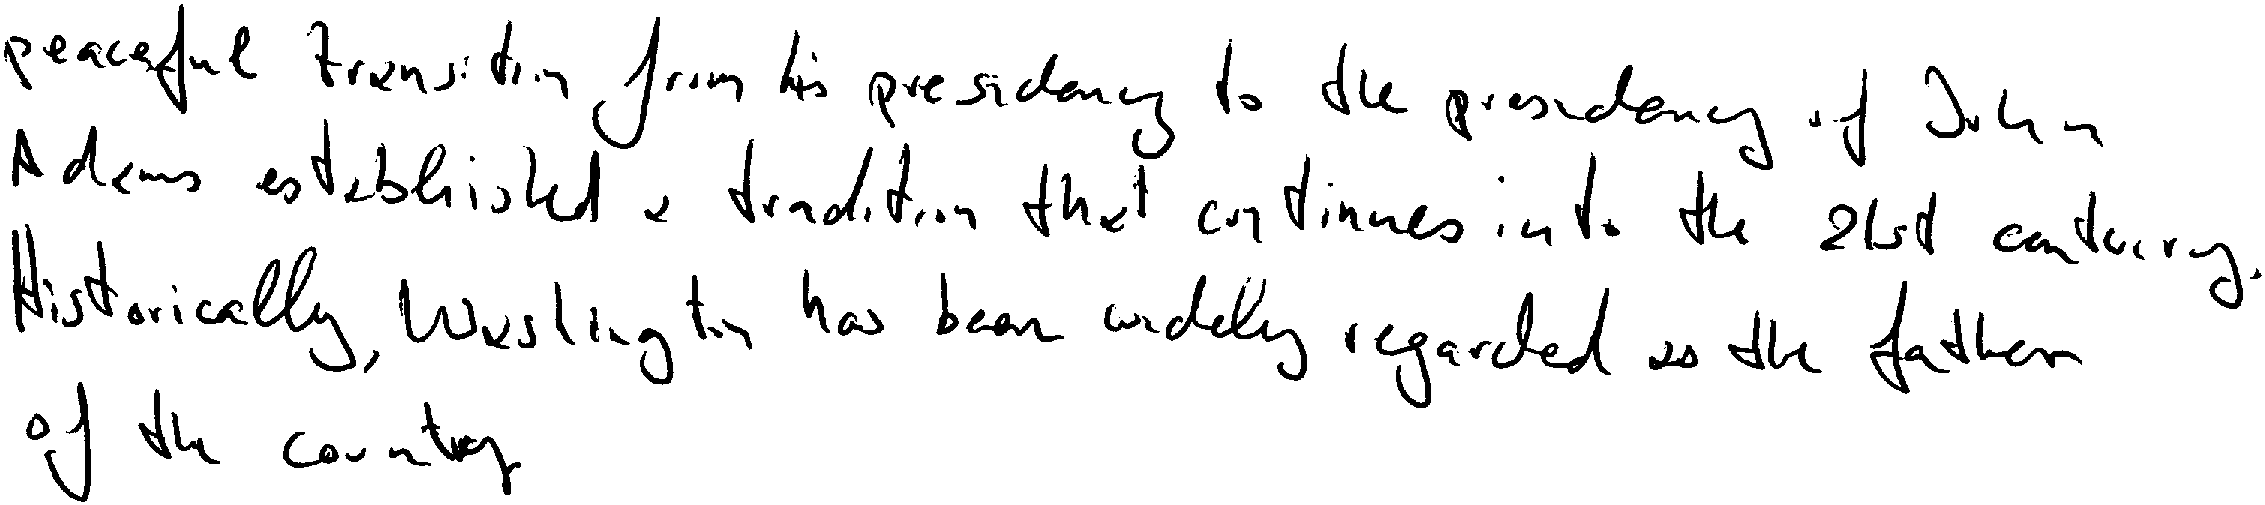 peaceful transition from his presidency to the presidency of John
Adams established a tradition that continues into the 21st century.
Historically, Washington has been widely regarded as the father
of the country